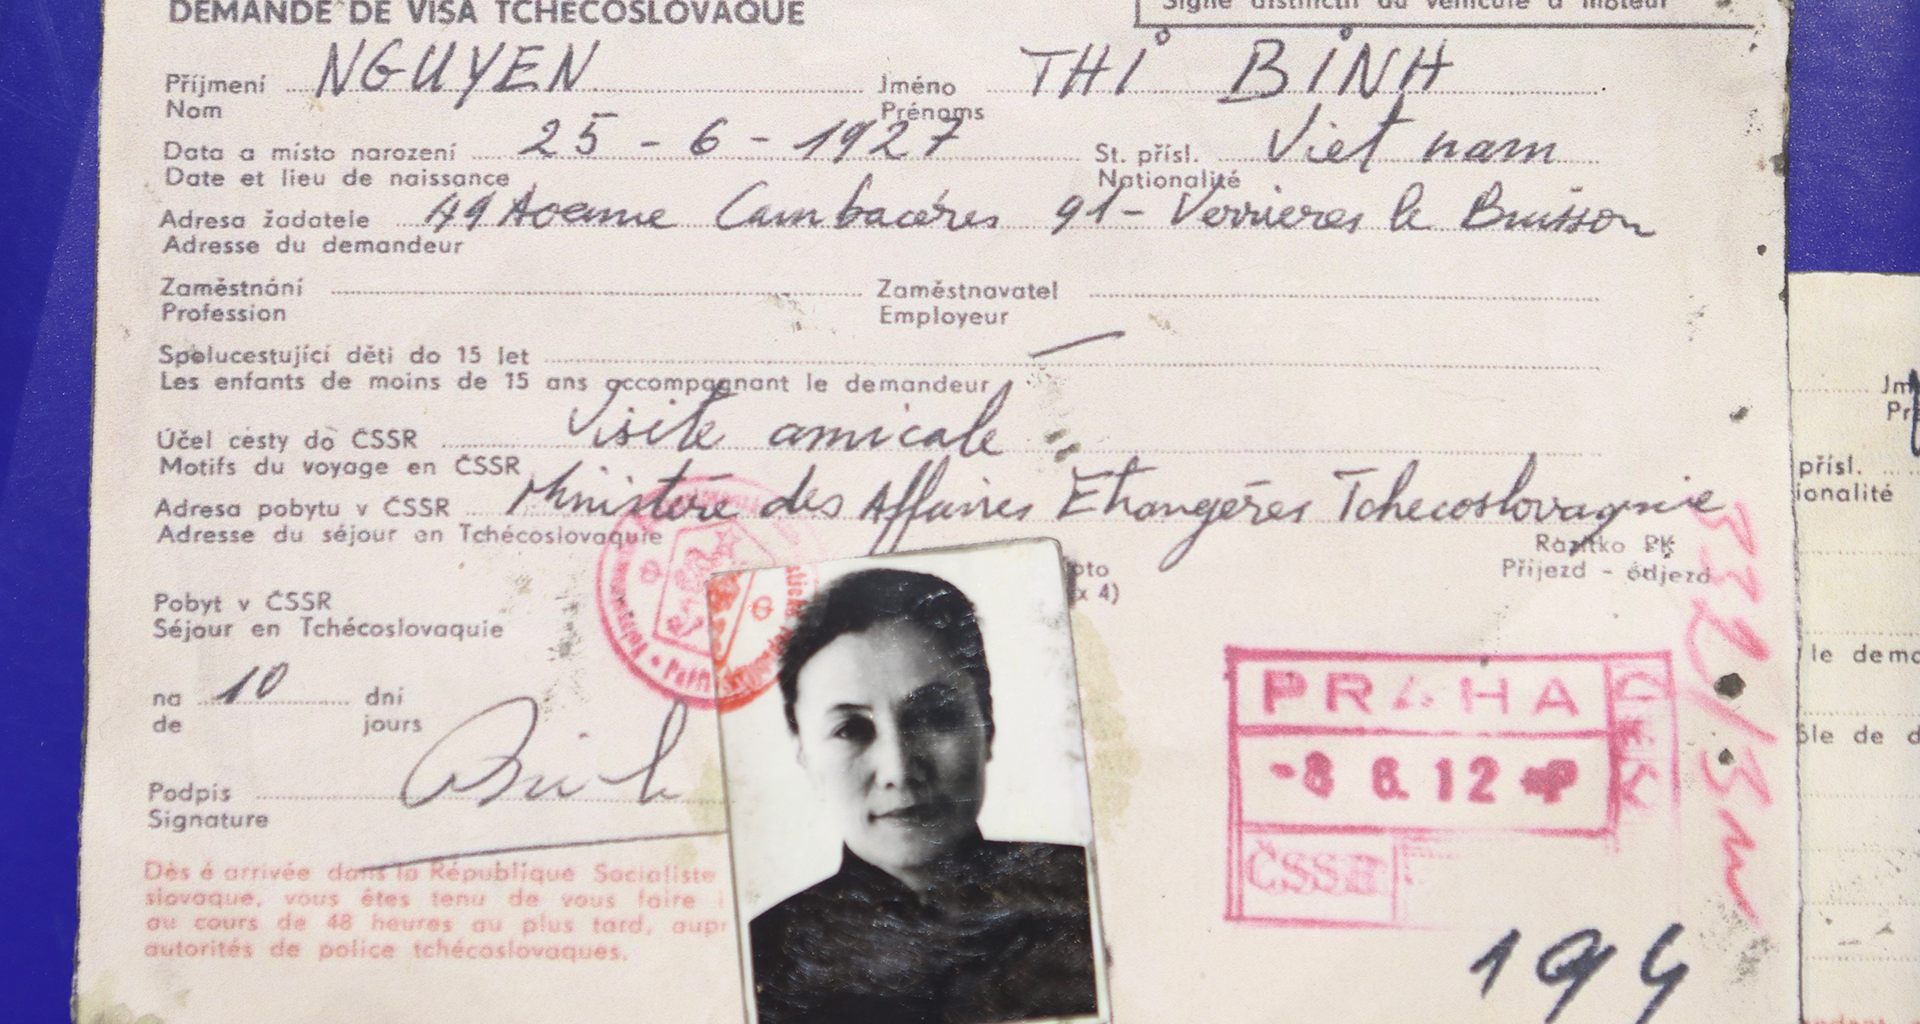 DEMANDE DE VISA TCHÉCOSLOVAQUE
Signe distinctif du véhicule à moteur
Příjmení NGUYEN Jméno THI BINH
Nom Prénoms
Data a místo narození 25 - 6 - 1927 St. přísl. Viet nam
Date et lieu de naissance Nationalité
Adresa žadatele 49 Cambacérès 91 - Verrieres le Buisson
Adresse du demandeur
Zaměstnání Zaměstnavatel
Profession Employeur
Spolucestující děti do 15 let —
Les enfants de moins de 15 ans accompagnant le demandeur
Účel cesty do ČSSR Visite amicale
Motifs du voyage en ČSSR
Adresa pobytu v ČSSR Ministère des Affaires Etrangères Tchecoslovaquie
Adresse du séjour en Tchécoslovaquie
Razítko PK
Příjezd - odjezd
oto
x 4)
Pobyt v ČSSR
Séjour en Tchécoslovaquie
na 10 dní
de jours
Podpis Binh
Signature
PRAHA
ČSSR
Dès é arrivée dans la République Socialiste
slovaque, vous êtes tenu de vous faire
au cours de 48 heures au plus tard, aupr
autorités de police tchécoslovaques.
194
Jm
Pr
přísl.
ionalité
le dema
ôle de d